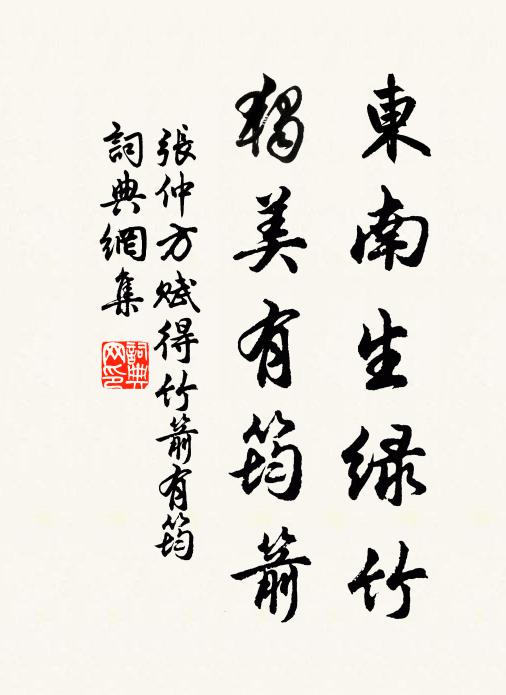 東南生绿竹
獨美有筠箭
張仲方賦得竹箭有筠
詞典網集
詞典网印